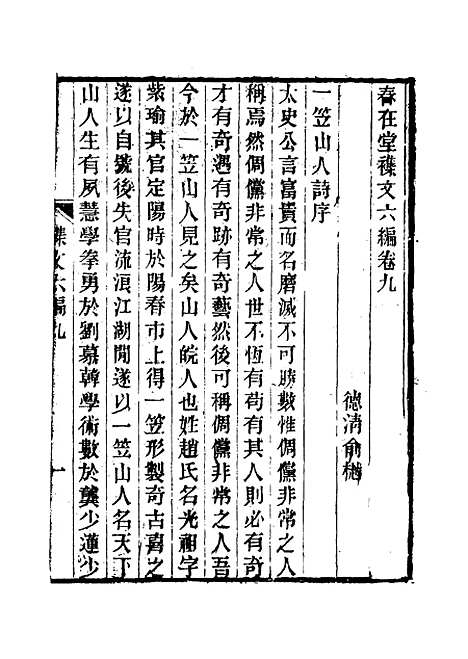 春在堂襍文六編卷九
德清俞樾
一笠山人詩序
太史公言富貴而名磨滅不可勝數惟倜儻非常之人
稱焉然倜儻非常之人世不恆有苟有其人則必有奇
才有奇遇有奇跡有奇藝然後可稱倜儻非常之人吾
今於一笠山人見之矣山人皖人也姓趙氏名光祖字
紫瑜其官定陽時於陽春市上得一笠形製奇古喜之
遂以自號後失官流浪江湖閒遂以一笠山人名天下
山人生有夙慧學拳勇於劉慕韓學術數於龔少蓮少
襍文六編九
一